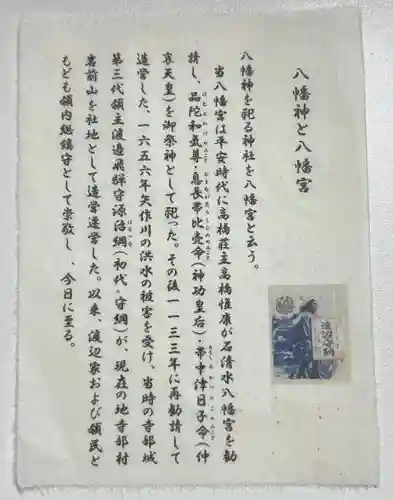 八幡神と八幡宮
八幡神を祀る神社を八幡宮と云う。
当八幡宮は平安時代に高橋荘主高橋惟康が石清水八幡宮を勧
請し、品陀和氣尊・息長帯比売命(神功皇后)・帯中津日子命(仲
哀天皇)を御祭神として祀った。その後一一三三年に再勧請して
造営した、一六五六年矢作川の洪水の被害を受け、当時の寺部城
第三代領主渡邊飛騨守源治綱(初代・守綱)が、現在の地寺部村
岩前山を社地として造営遷営した。以来、渡辺家および領民と
もども領内総鎮守として崇敬し、今日に至る。
渡辺守綱